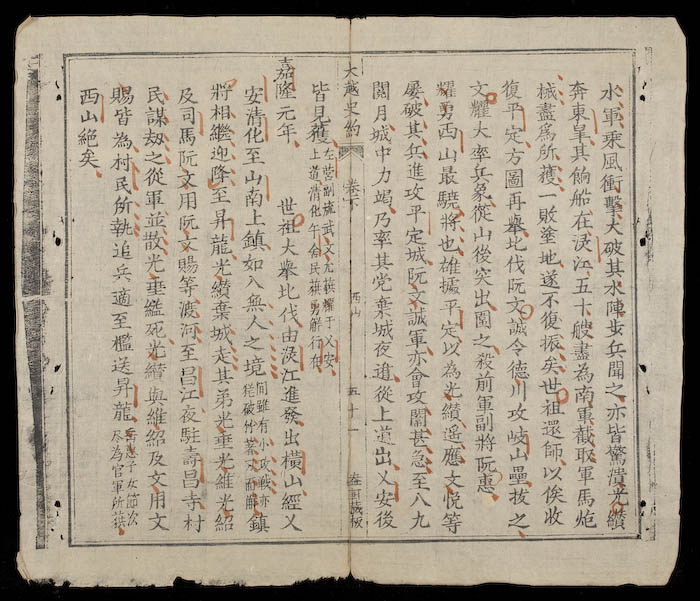 水軍乘風衝擊大破其水陣步兵聞之亦皆驚潰光纘
奔東皋其餉船在淚江五十艘盡為南軍截取軍馬炮
械盡為所獲一敗塗地遂不復振矣世祖還師以俟收
復平定方圖再舉北伐阮文誠令德川攻岐山壘拔之
文耀大率兵象從山後突出圍之殺前軍副將阮惠
耀勇西山最驍將也雄據平定以為光纘遙應文悅等
屢破其兵進攻平定城阮文誠軍亦會攻圍甚急至八九
閱月城中力竭乃率其党棄城夜遁從上道出乂安後
大越史約 卷下 西山 五十一 藏板
皆見獲
武文尤 耀于乂安
上道清化午舍民 勇解行在
嘉隆元年 世祖大舉北伐由淚江進發出橫山經乂
安清化至山南上鎮如入無人之境
間雖有小攻戰亦
破竹 而解
鎮
將相繼迎降至昇龍光纘棄城走其弟光垂光維光紹
及司馬阮文用阮文賜等渡河至昌江夜駐壽昌寺村
民謀劫之從軍並散光垂縊死光纘與維紹及文用文
賜皆為村民所執追兵適至檻送昇龍
惠子女節次
為官軍所獲
西山絕矣